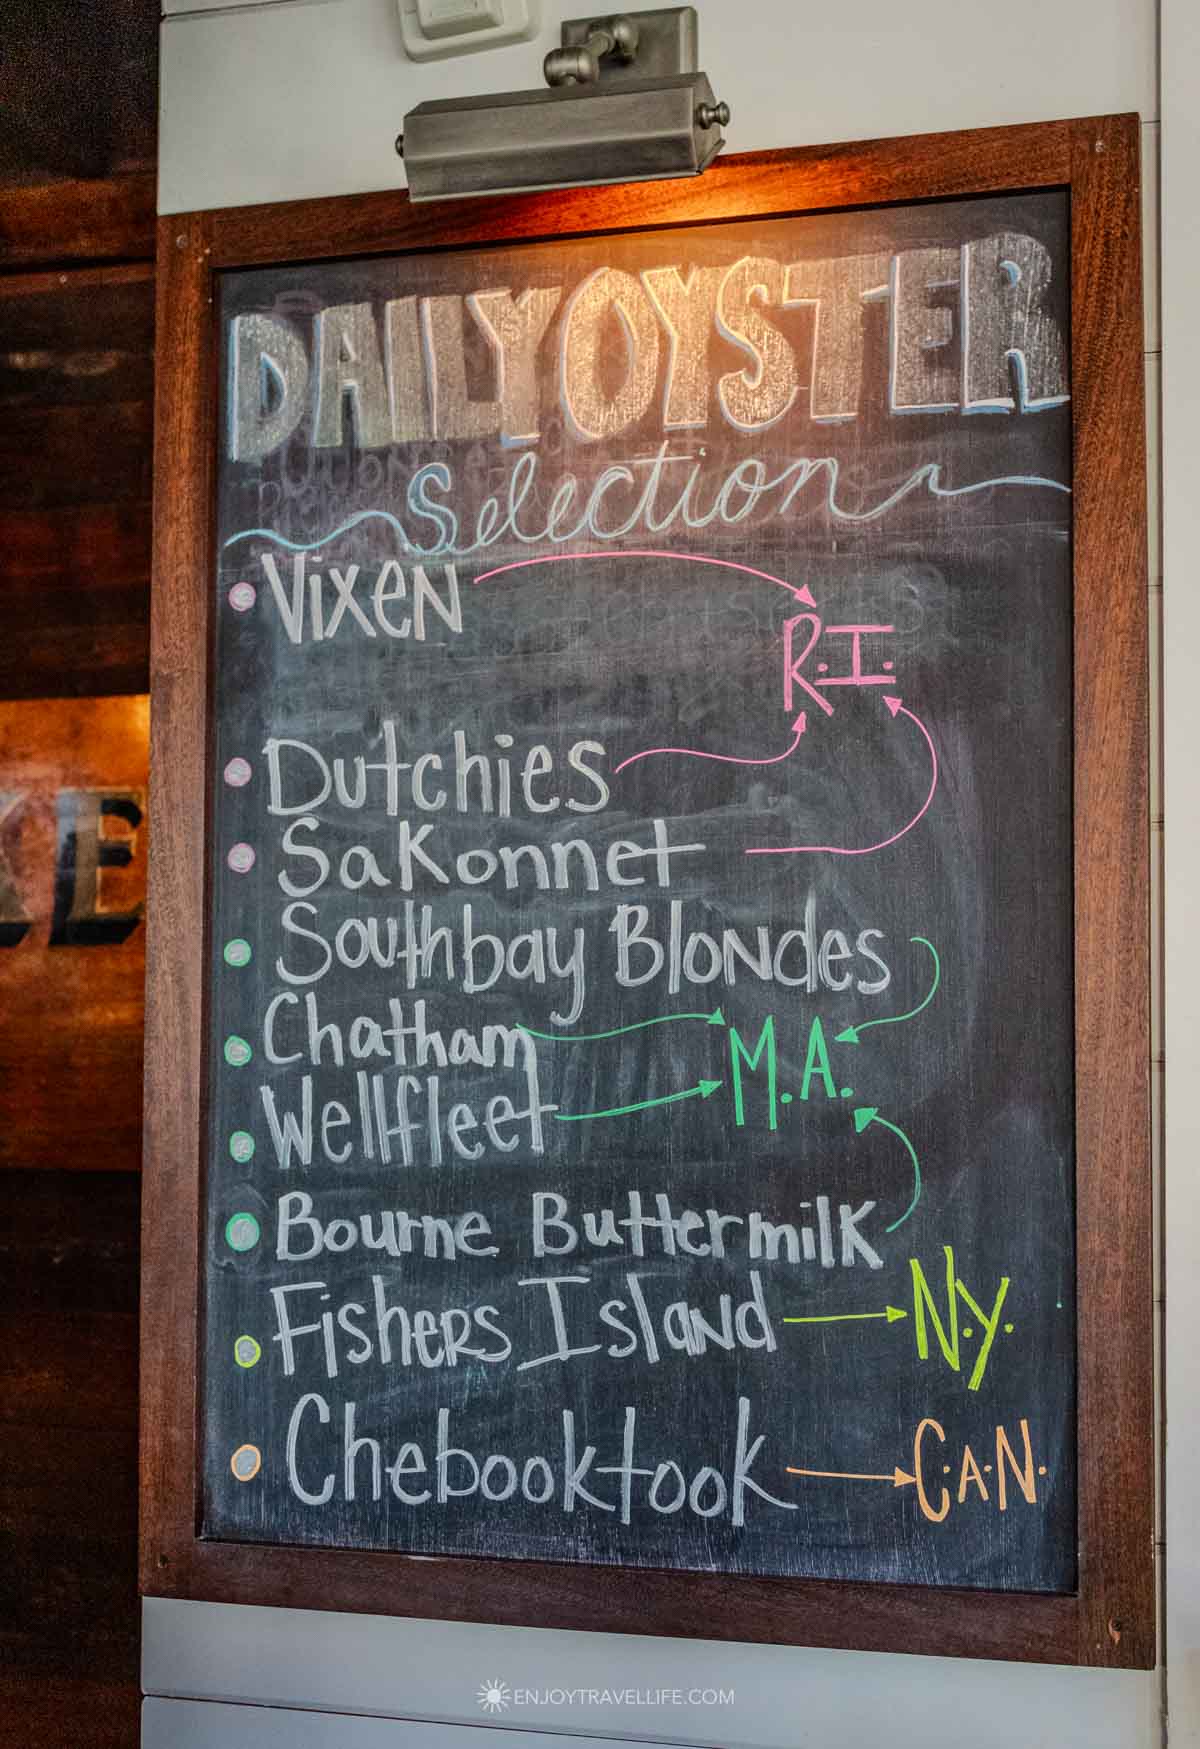 DAILY OYSTER
Selection
Vixen
R.I.
Dutchies
Sakonnet
Southbay Blondes
Chatham
M.A.
Wellfleet
Bourne Buttermilk
Fishers Island
N.Y.
Chebooktook
C.A.N.
ENJOYTRAVELLIFE.COM